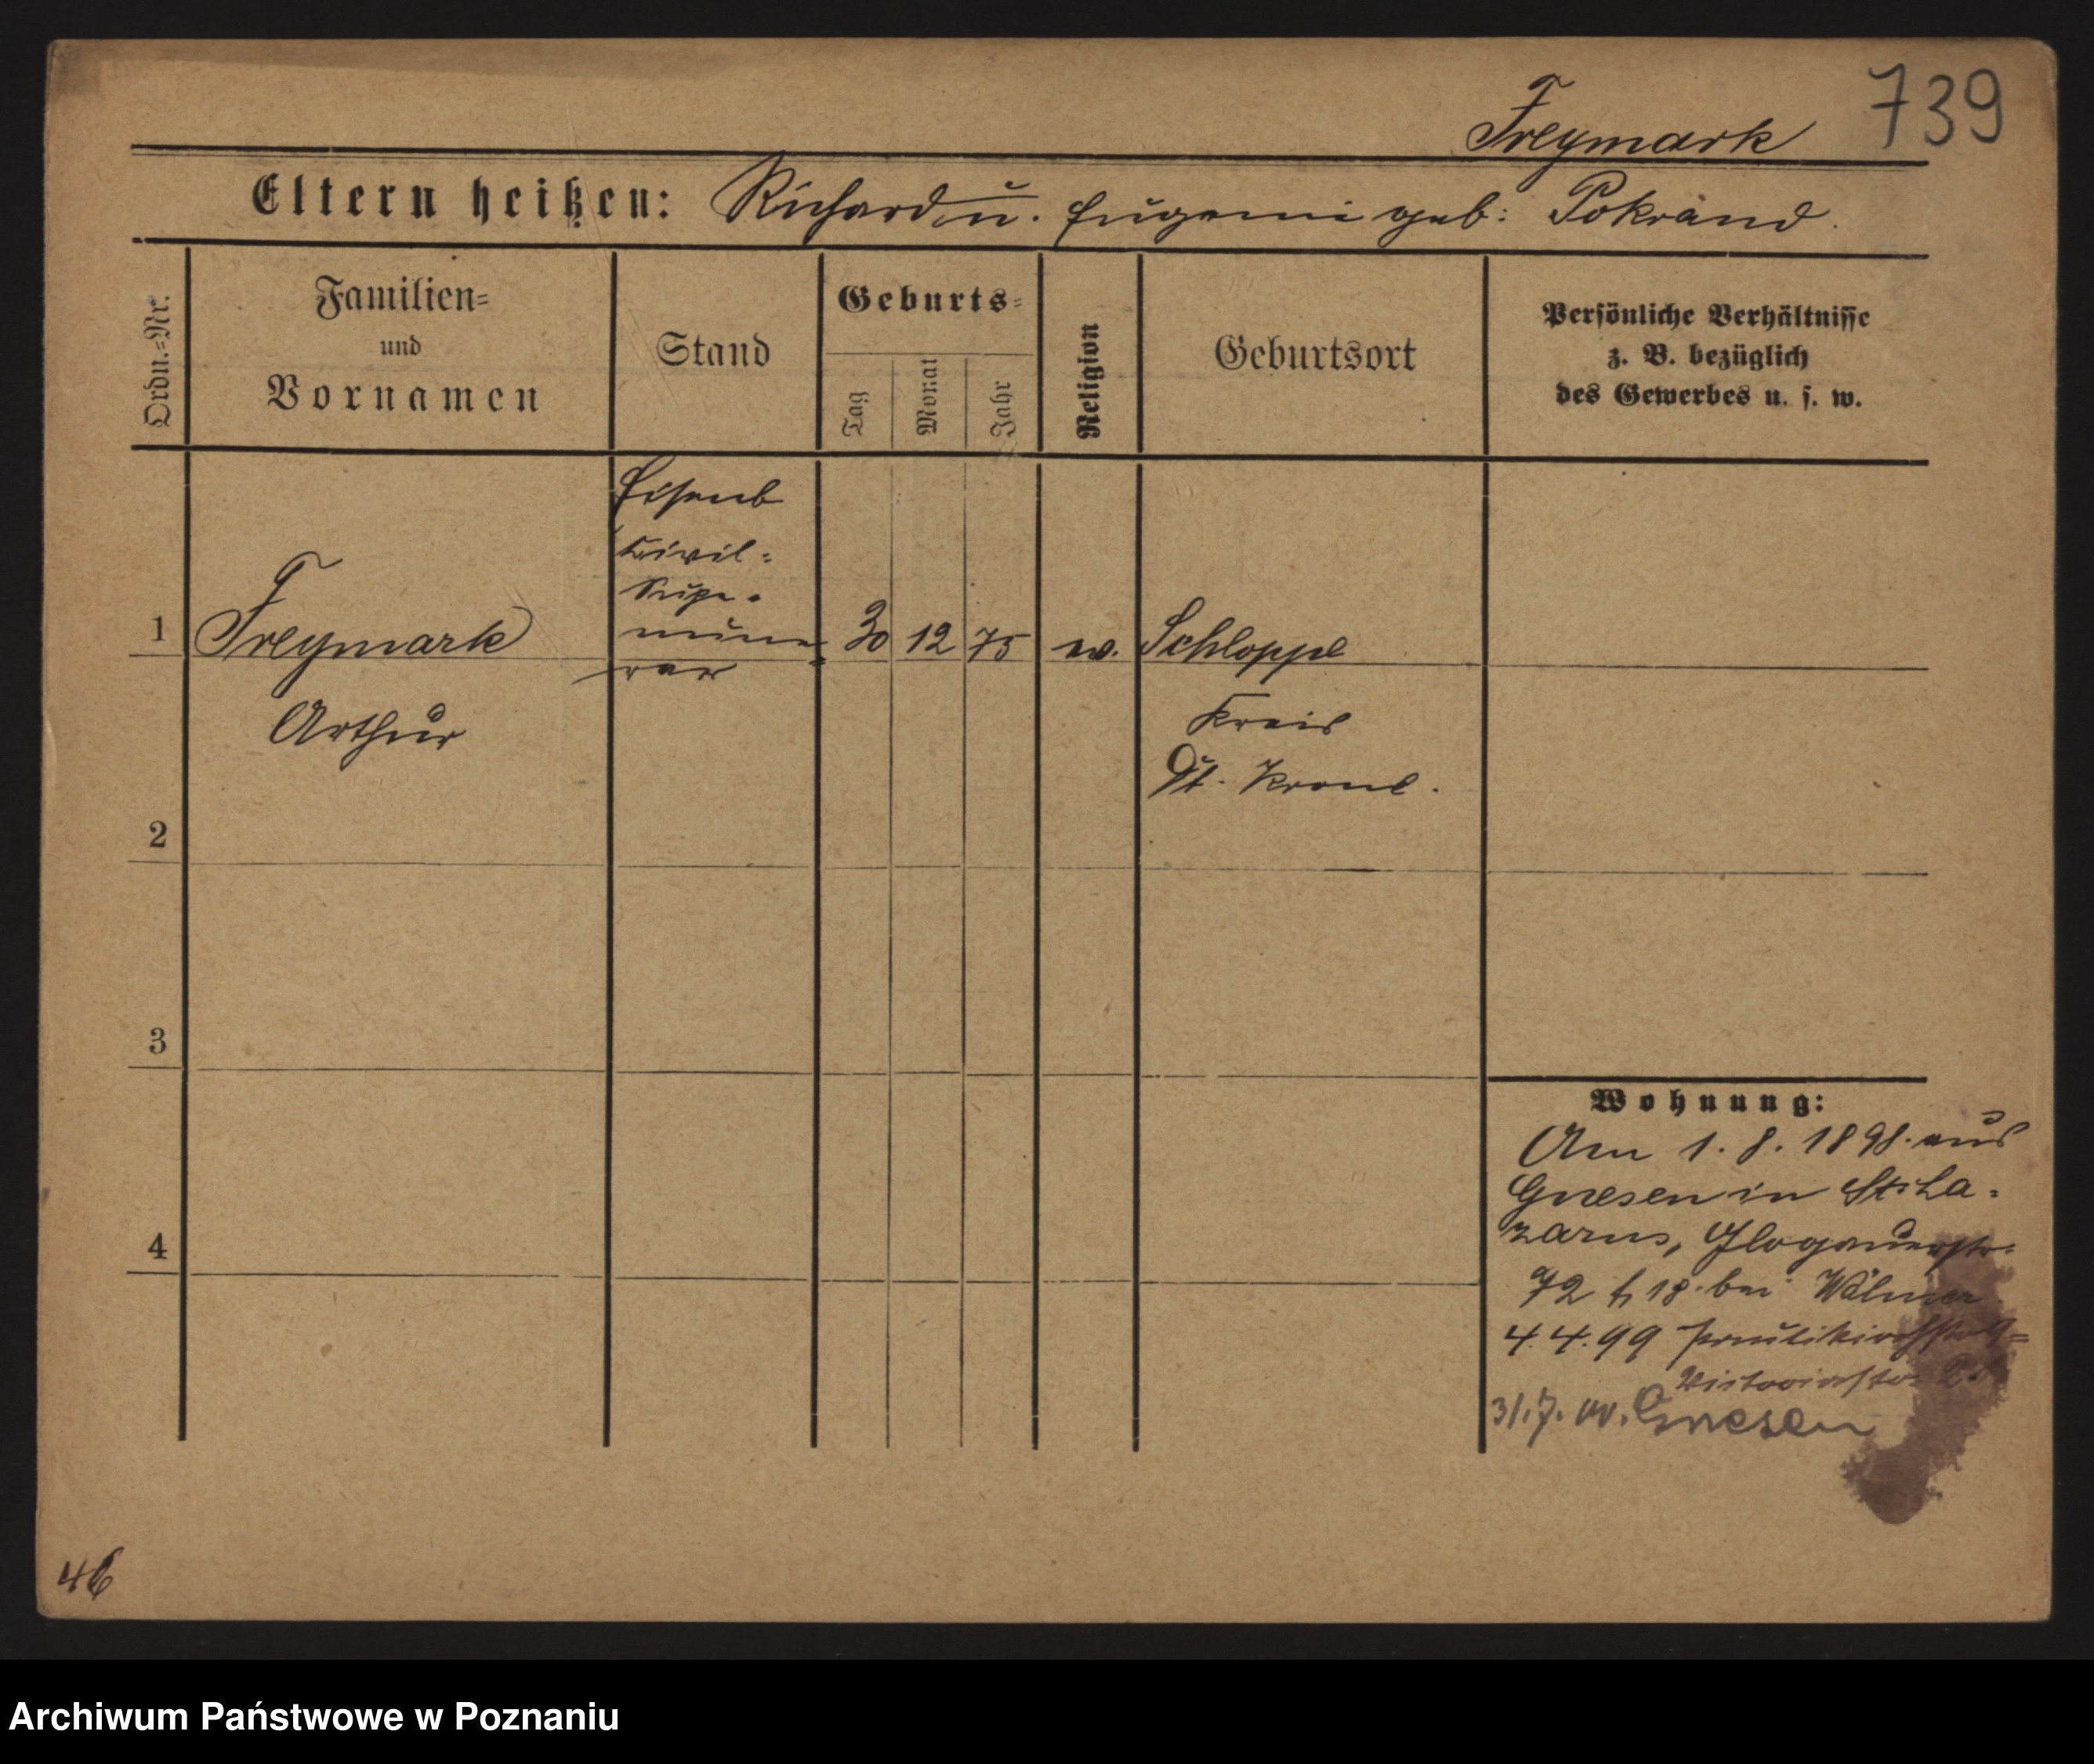 739
Freymark
Eltern heißen: Richard u. Eugenie geb: Pokrand.
Ordn.=Nr.
Familien=
und
Vornamen
Stand
Geburts=
Tag
Monat
Jahr
Religion
Geburtsort
Persönliche Verhältnisse
z. B. bezüglich
des Gewerbes u. s. w.
1
Freymark
Arthur
Eisenb
Civil=
Supe=
nume=
rar
30
12
75
ev.
Schloppe
Kreis
Dt. Krone.
2
3
4
Wohnung:
Am 1. 8. 1898. aus
Gnesen in St. La=
zarus, Glogauerstr.
72 18. bei
4. 4. 99
Victoriastr.
31.7. Gnesen
46
Archiwum Państwowe w Poznaniu